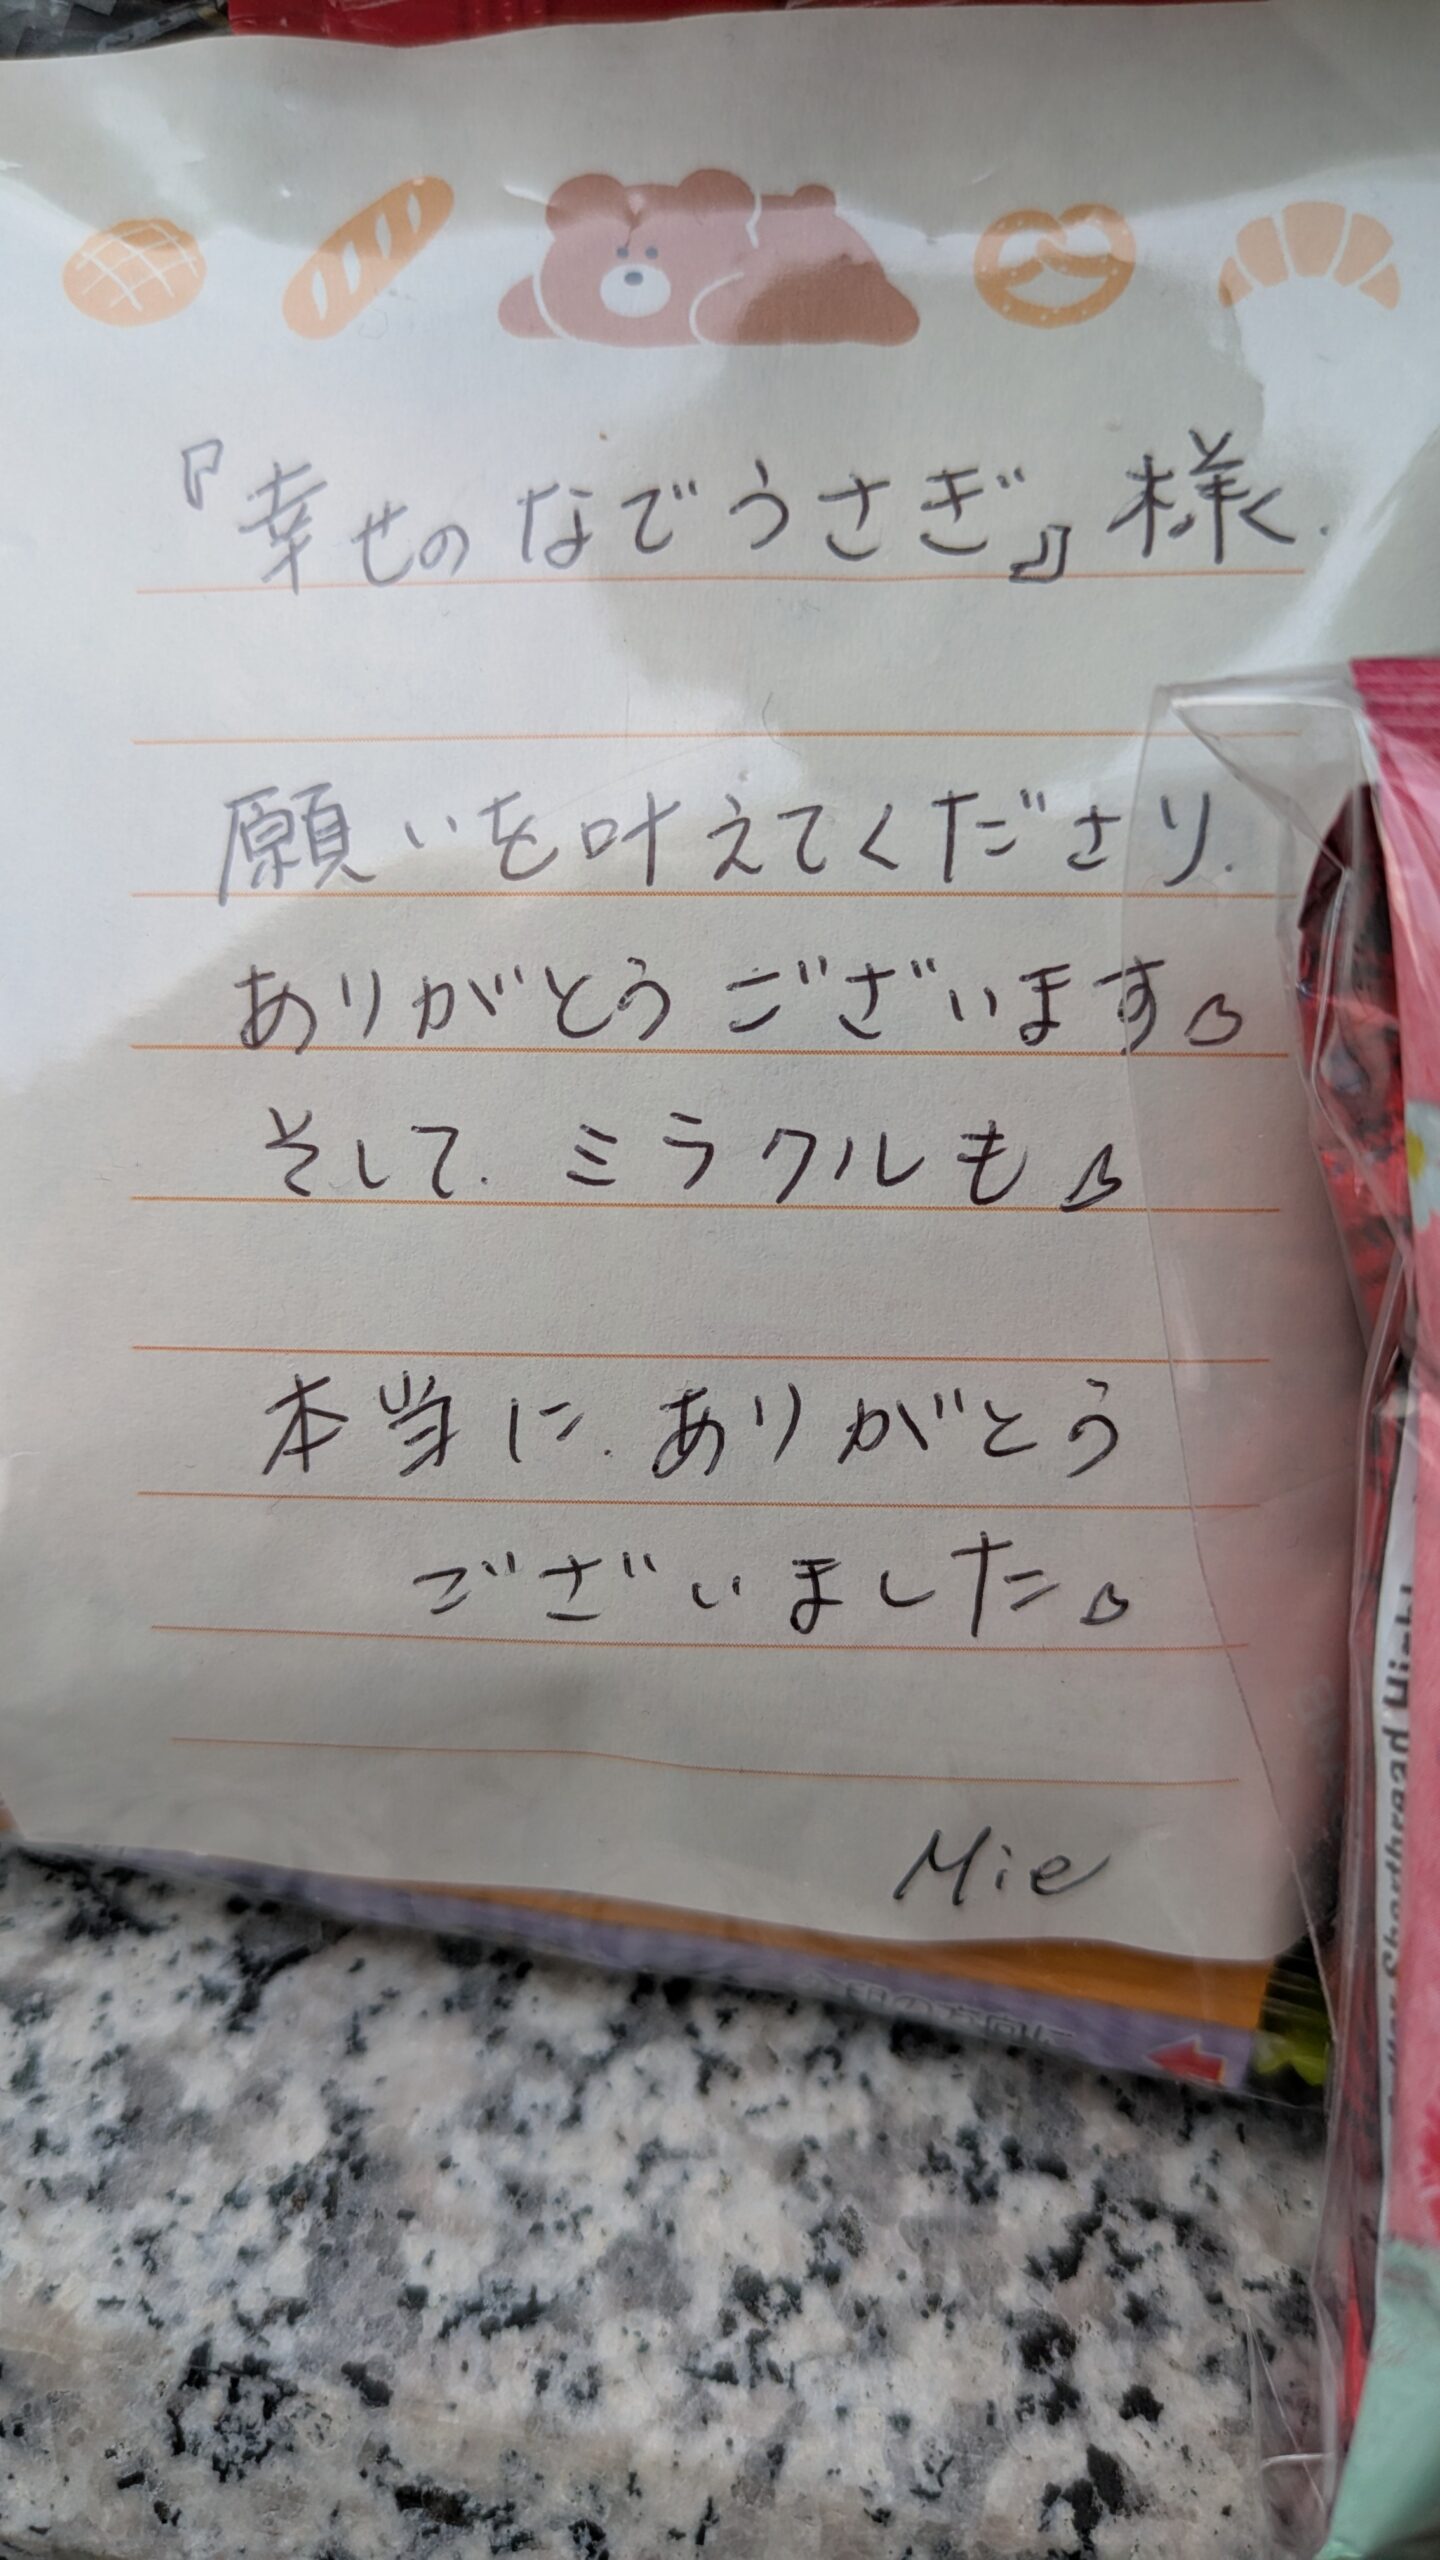 『幸せのなでうさぎ』様へ.
願いを叶えてくださり.
ありがとうございます。
そして.ミラクルも。
本当に.ありがとう
ございました。
Mie